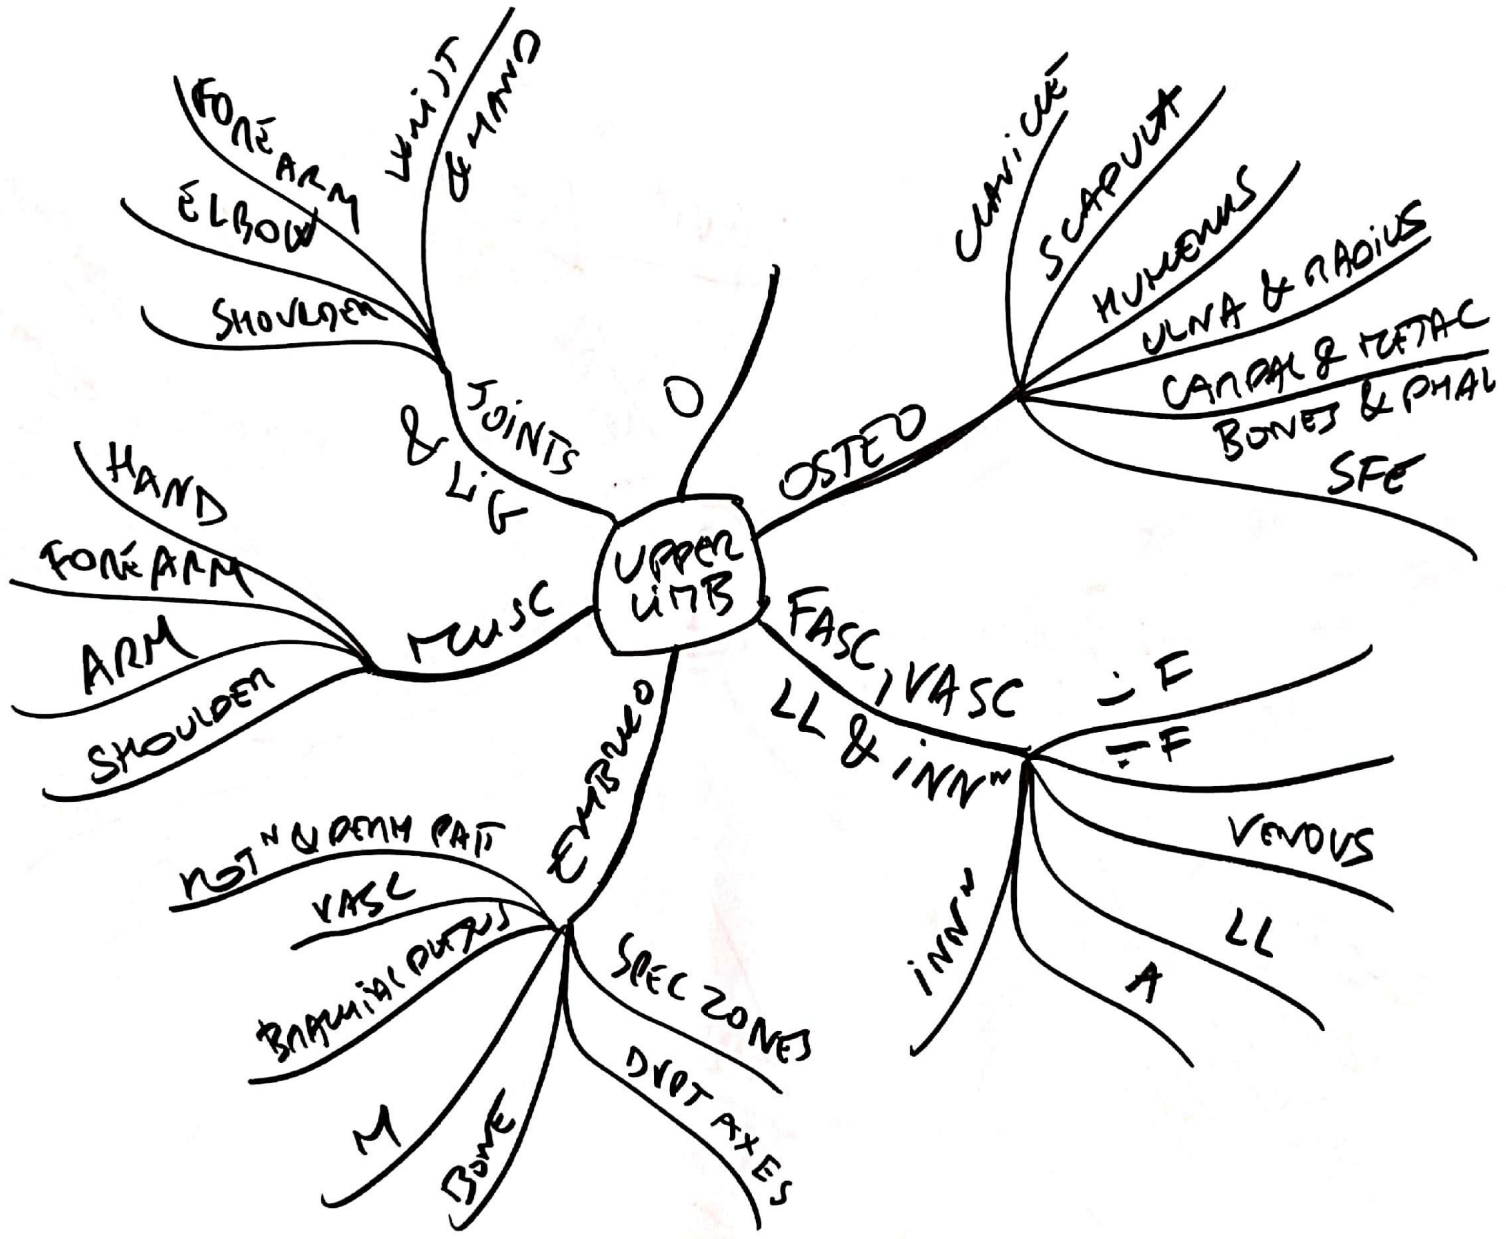 UPPER
LIMB
O
OSTEO
CLAVICLE
SCAPULA
HUMERUS
ULNA & RADIUS
CARPAL & METAC
BONES & PHAL
SFE
FASC, VASC
LL & INNⁿ
- F
= F
VENOUS
LL
A
INNⁿ
EMBRYO
SPEC ZONES
DVPT AXES
BONE
M
BRACHIAL PLEXUS
VASC
ROTⁿ & DERM PATT
MUSC
SHOULDER
ARM
FOREARM
HAND
JOINTS
& LIG
SHOULDER
ELBOW
FOREARM
WRIST
& HAND